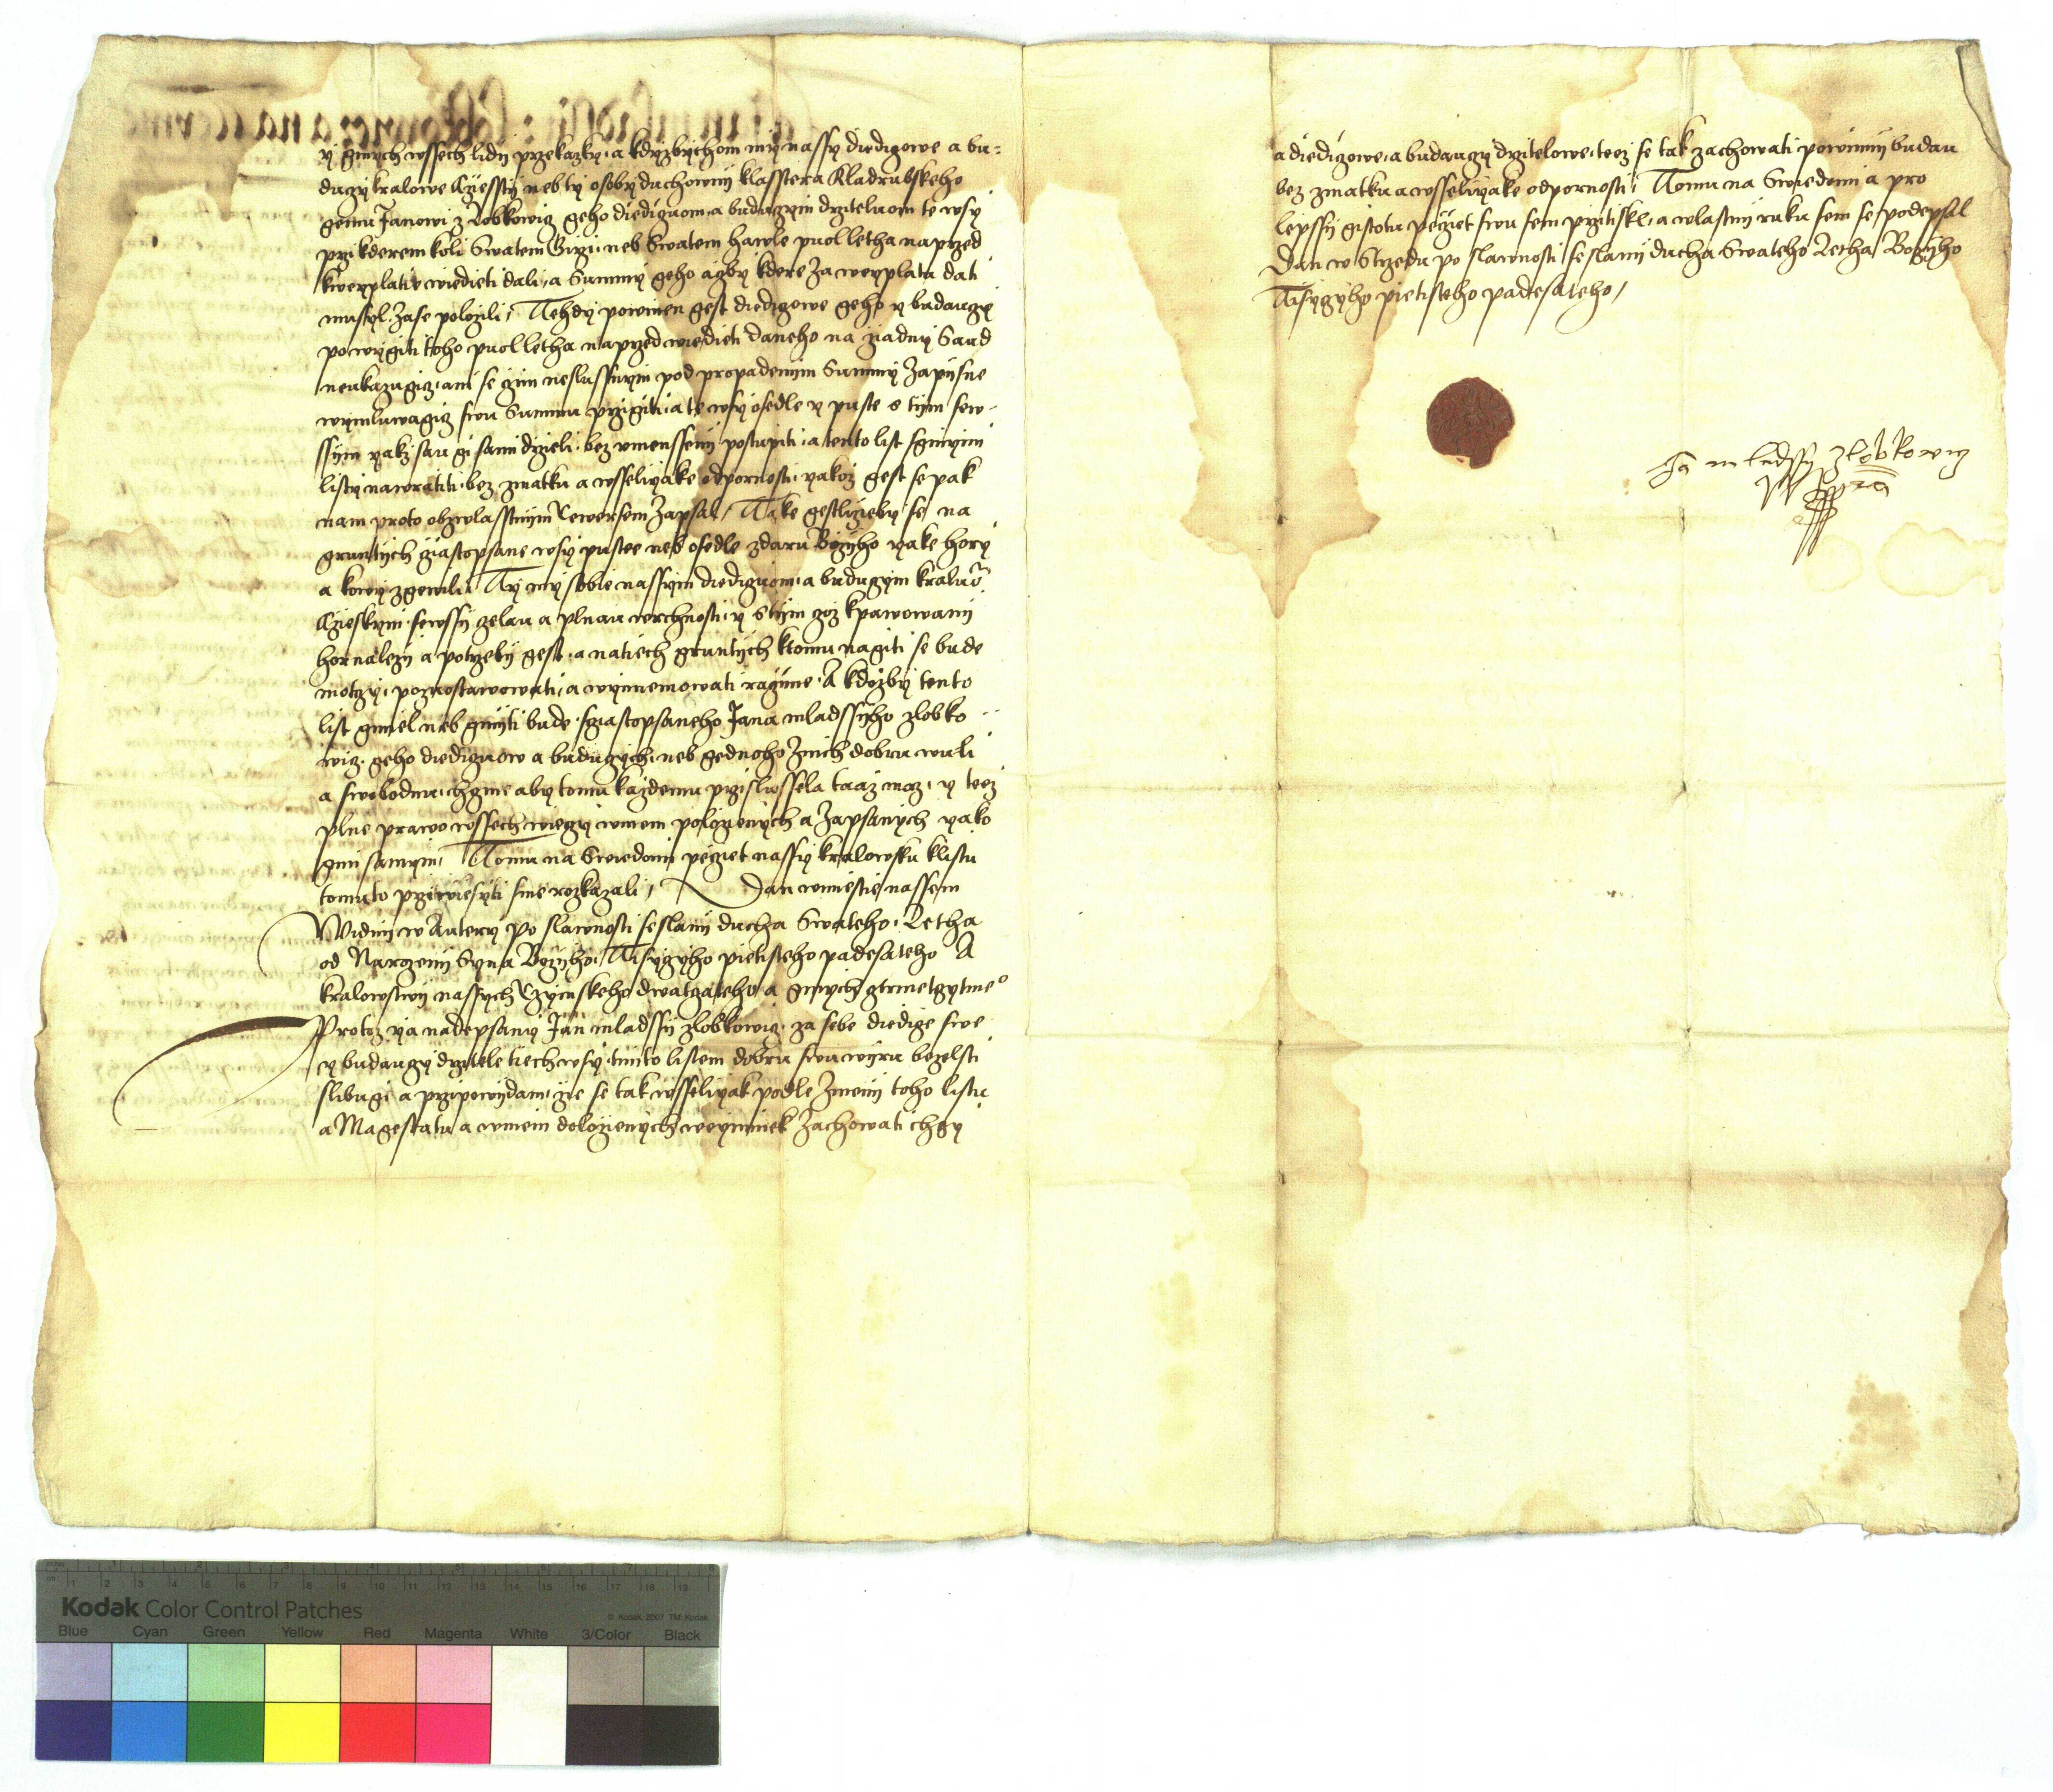 y ginych wssech lidij przekazky, a kdyzbychom my nassy diediczowe a bu-
duczy kralowe Czessty neb ty osoby duchowny klasstera Kladrubskeho
gemu Janowi z Lobkowicz geho diediczuom, a buduczym drziteluom te wsy
przi kderem koli Swatem Girzi, neb Swatem hawle puol letha naprzed
kweyplatie wiedieti dali, a Summy geho aczby kdere za weyplatu dati
musyl zase polozili, Tehdy powinen gest diediczowe geho y buduczy
po wygiti toho puol letha naprzed wiedieti daneho na ziadny Saud
neukazugicz, ani se czim neslussnym pod propadenim Summy zapisne
wymluwagicz swu Summu przigiti, a te wsy osedle y puste s tijm sew-
ssijm yakz sau gi sami drzieli, bez umenssenij postupiti, a tento list s ginymi
listy nawratiti, bez zmatku a wsseliyake odpornosti, yakoz gest se pak
nam proto obzwlasstnym Rewersem zapsal, Take gestlizieby se na
gruntijch giastopsane wsy pustee neb osedle z daru Bozijho yake hory
a kowy zgewili, Ty my sobie nassym diediczuom, a buduczym kraluo
Czieskym, sewssij zelau a plnau wrchnosti, y s tijm coz k pawowanij
hor nalezij a potrzebij gest, a na tiech gruntijch k tomu nagiti se bude
moczy, poznostawowati, a wynnemowati raczime, A kdozby tento
list gmiel neb gmijti bude, s giastopsaneho Jana mladssijho z lobko-
wicz, geho diediczuow a buduczych, neb gednoho z nich dobru wuli
a swobodnu, chczme aby tomu kazdemu przislussela taaz mocz, y teez
plne prawo wssech wieczy w niem polozienych a zapsanych yako
gim samym, Tomu na Swiedomi peczet nassy kralowsku k listu
tomuto przywiesyti sme rozkazali, Dan w miestie nassem
Widni w Autery po slawnosti seslanij ducha Swateho, Letha
od Narozenij Syna Bozijho, Tisyczyho pietisteho padesateho A
kralowstwij nassych Rzymskeho dwatczateho a ginych cztrmetczytmeo
Protoz ya nadepsany Jan mladssij z lobkowicz, za sebe diedicze swe
y buduczy drzitele tiech wsy, tiimto listem dobru swu wijru bezelsti
slibugi a przipowijdam, zie se tak wsseliyak podle znienij toho listu
a Magestatu a w niem dolozienych weyminek zachowati chczy
a diediczowe, a buduczy drzitelowe, teez se tak zachowati powinni budau
bez zmatku a wsseliyake odpornosti, Tomu na Swiedomi a pro
lepssij gistotu peczet swu sem pritiskl, a wlastnij ruku sem se podepsal
Dan w Strzedu po slawnosti seslanij ducha Swateho Letha Bozijho
Tisyczyho pietisteho padesateho,
Jan mladssy z lobkowicz